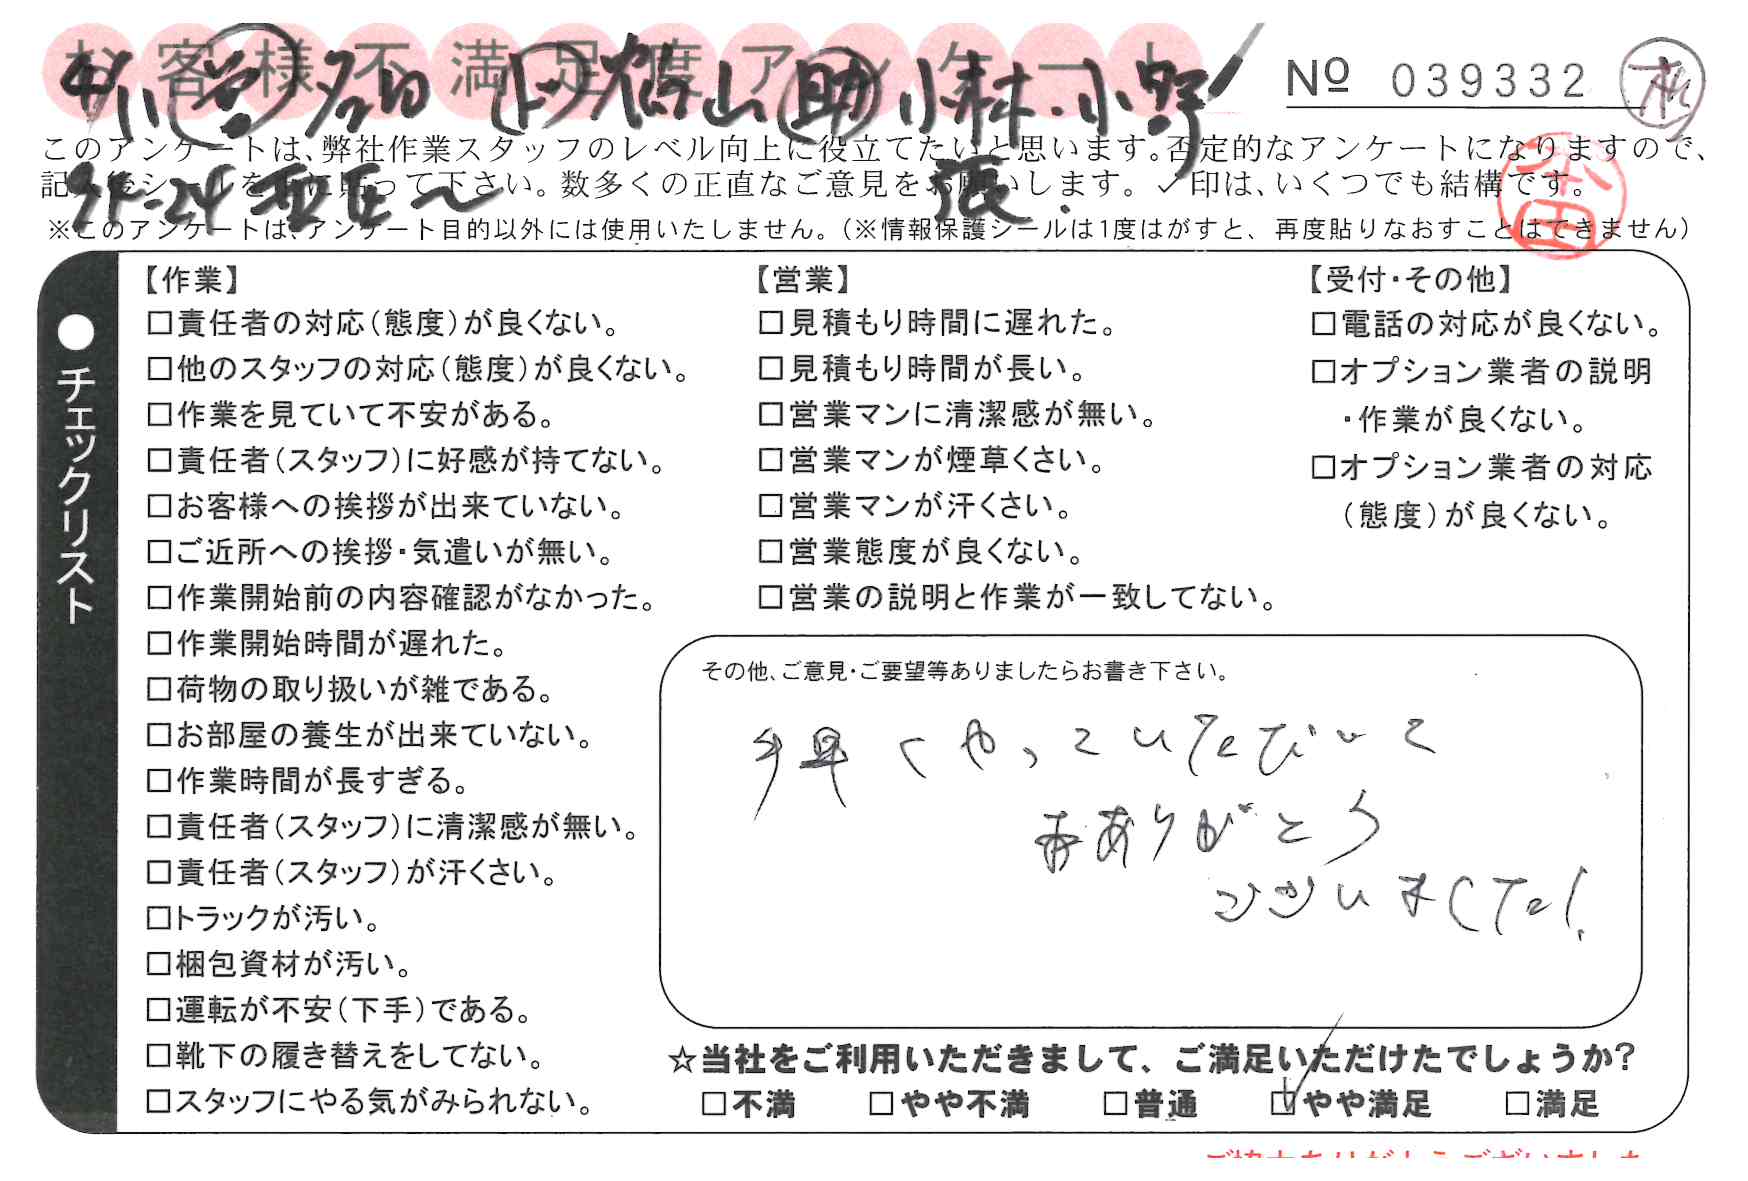 お客様不満足度アンケート
№ 039332
このアンケートは、弊社作業スタッフのレベル向上に役立てたいと思います。否定的なアンケートになりますので、
記入後シールを上に貼って下さい。数多くの正直なご意見をお願いします。✓印は、いくつでも結構です。
※このアンケートは、アンケート目的以外には使用いたしません。(※情報保護シールは1度はがすと、再度貼りなおすことはできません)
小林・小野
●チェックリスト
【作業】
□責任者の対応(態度)が良くない。
□他のスタッフの対応(態度)が良くない。
□作業を見ていて不安がある。
□責任者(スタッフ)に好感が持てない。
□お客様への挨拶が出来ていない。
□ご近所への挨拶・気遣いが無い。
□作業開始前の内容確認がなかった。
□作業開始時間が遅れた。
□荷物の取り扱いが雑である。
□お部屋の養生が出来ていない。
□作業時間が長すぎる。
□責任者(スタッフ)に清潔感が無い。
□責任者(スタッフ)が汗くさい。
□トラックが汚い。
□梱包資材が汚い。
□運転が不安(下手)である。
□靴下の履き替えをしてない。
□スタッフにやる気がみられない。
【営業】
□見積もり時間に遅れた。
□見積もり時間が長い。
□営業マンに清潔感が無い。
□営業マンが煙草くさい。
□営業マンが汗くさい。
□営業態度が良くない。
□営業の説明と作業が一致してない。
【受付・その他】
□電話の対応が良くない。
□オプション業者の説明
・作業が良くない。
□オプション業者の対応
(態度)が良くない。
その他、ご意見・ご要望等ありましたらお書き下さい。
手早くやっていただいて
ありがとう
ございました!
☆当社をご利用いただきまして、ご満足いただけたでしょうか?
□不満 □やや不満 □普通 ☑やや満足 □満足
ご協力ありがとうございました